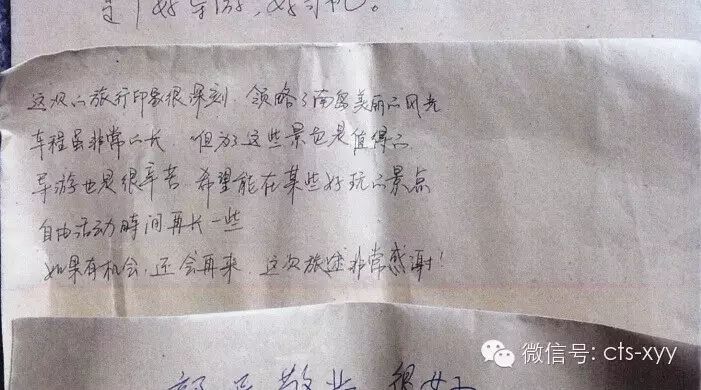 好导游，好司机。
这次的旅行印象很深刻，领略了南岛美丽的风光
车程虽非常的长，但为了这些景色也是值得的
导游也是很辛苦，希望能在某些好玩的景点
自由活动时间再长一些
如果有机会，还会再来，这次旅途非常感谢！
敬业 很好
微信号: cts-xyy